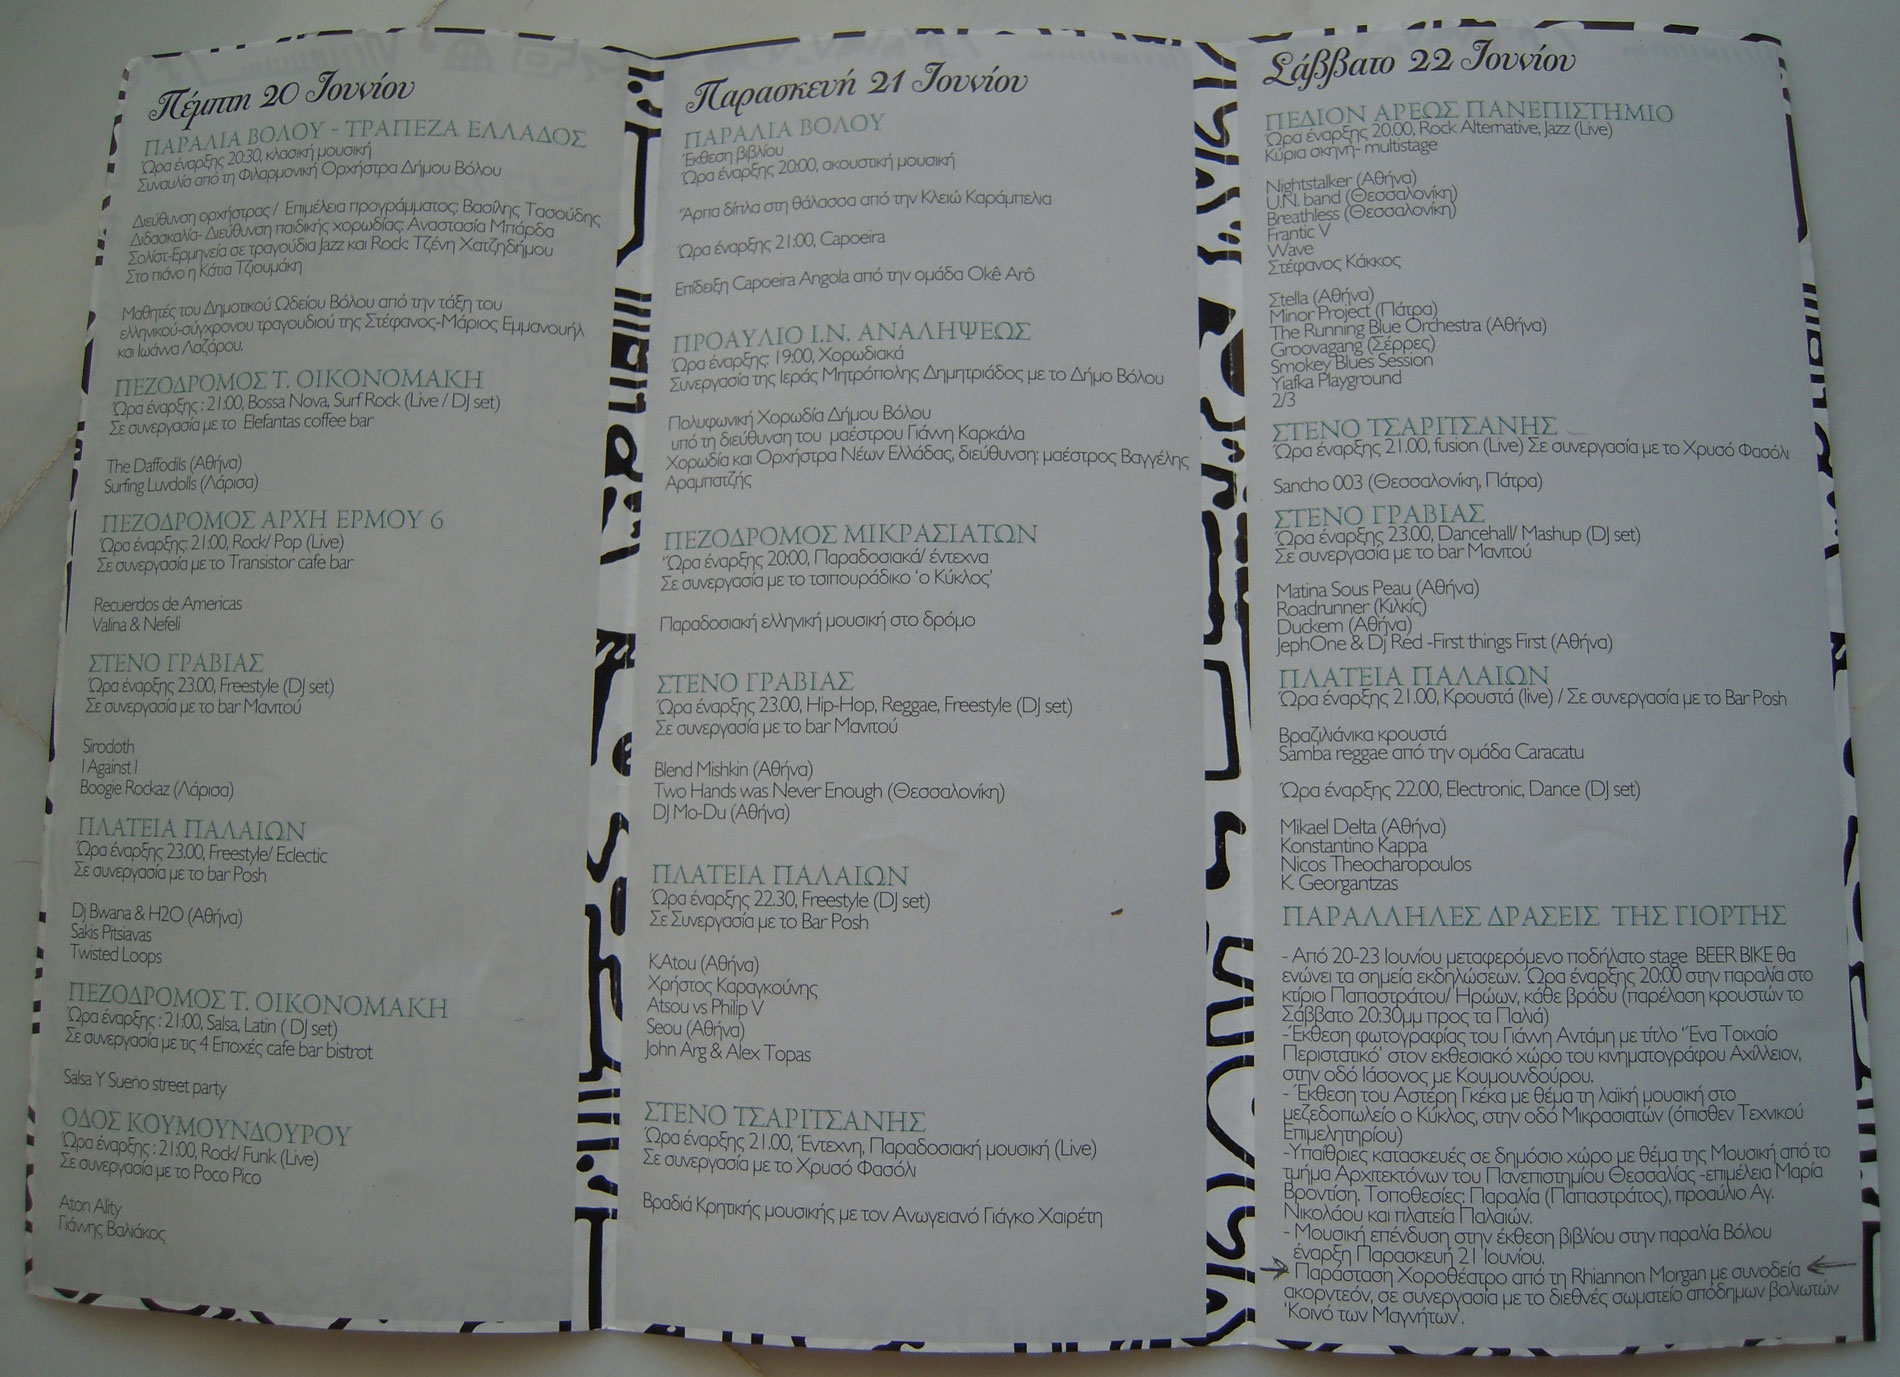 Πέμπτη 20 Ιουνίου
ΠΑΡΑΛΙΑ ΒΟΛΟΥ - ΤΡΑΠΕΖΑ ΕΛΛΑΔΟΣ
Ώρα έναρξης 20:30, κλασική μουσική
Συναυλία από τη Φιλαρμονική Ορχήστρα Δήμου Βόλου
Διεύθυνση ορχήστρας / Επιμέλεια προγράμματος: Βασίλης Τασούδης
Διδασκαλία- Διεύθυνση παιδικής χορωδίας: Αναστασία Μπάρδα
Σολίστ-Ερμηνεία σε τραγούδια Jazz και Rock: Τζένη Χατζηδήμου
Στο πιάνο η Κάτια Τζιουμάκη
Μαθητές του Δημοτικού Ωδείου Βόλου από την τάξη του
ελληνικού-σύγχρονου τραγουδιού της Στέφανος-Μάριος Εμμανουήλ
και Ιωάννα Λαζάρου.
ΠΕΖΟΔΡΟΜΟΣ Τ. ΟΙΚΟΝΟΜΑΚΗ
Ώρα έναρξης : 21:00, Bossa Nova, Surf Rock (Live / DJ set)
Σε συνεργασία με το Elefantas coffee bar
The Daffodils (Αθήνα)
Surfing Luvdolls (Λάρισα)
ΠΕΖΟΔΡΟΜΟΣ ΑΡΧΗ ΕΡΜΟΥ 6
Ώρα έναρξης: 21:00, Rock/ Pop (Live)
Σε συνεργασία με το Transistor cafe bar
Recuerdos de Americas
Valina & Nefeli
ΣΤΕΝΟ ΓΡΑΒΙΑΣ
Ώρα έναρξης 23.00, Freestyle (DJ set)
Σε συνεργασία με το bar Μανιτού
Sirodoth
I Against I
Boogie Rockaz (Λάρισα)
ΠΛΑΤΕΙΑ ΠΑΛΑΙΩΝ
Ώρα έναρξης 23.00, Freestyle/ Eclectic
Σε συνεργασία με το bar Posh
Dj Bwana & H2O (Αθήνα)
Sakis Pitsiavas
Twisted Loops
ΠΕΖΟΔΡΟΜΟΣ Τ. ΟΙΚΟΝΟΜΑΚΗ
Ώρα έναρξης : 21:00, Salsa, Latin ( DJ set)
Σε συνεργασία με τις 4 Εποχές cafe bar bistrot
Salsa Y Sueño street party
ΟΔΟΣ ΚΟΥΜΟΥΝΔΟΥΡΟΥ
Ώρα έναρξης : 21:00, Rock/ Funk (Live)
Σε συνεργασία με το Poco Pico
Aton Ality
Γιάννης Βαλιάκος
Παρασκευή 21 Ιουνίου
ΠΑΡΑΛΙΑ ΒΟΛΟΥ
Έκθεση βιβλίου
Ώρα έναρξης 20:00, ακουστική μουσική
Άρπα δίπλα στη θάλασσα από την Κλειώ Καράμπελια
Ώρα έναρξης 21:00, Capoeira
Επίδειξη Capoeira Angola από την ομάδα Okê Arô
ΠΡΟΑΥΛΙΟ Ι.Ν. ΑΝΑΛΗΨΕΩΣ
Ώρα έναρξης: 19:00, Χορωδιακά
Συνεργασία της Ιεράς Μητρόπολης Δημητριάδος με το Δήμο Βόλου
Πολυφωνική Χορωδία Δήμου Βόλου
υπό τη διεύθυνση του μαέστρου Γιάννη Καρκάλα
Χορωδία και Ορχήστρα Νέων Ελλάδας, διεύθυνση: μαέστρος Βαγγέλης
Αραμπατζής
ΠΕΖΟΔΡΟΜΟΣ ΜΙΚΡΑΣΙΑΤΩΝ
Ώρα έναρξης 20:00, Παραδοσιακά/ έντεχνα
Σε συνεργασία με το τσιπουράδικο 'ο Κύκλος'
Παραδοσιακή ελληνική μουσική στο δρόμο
ΣΤΕΝΟ ΓΡΑΒΙΑΣ
Ώρα έναρξης 23.00, Hip-Hop, Reggae, Freestyle (DJ set)
Σε συνεργασία με το bar Μανιτού
Blend Mishkin (Αθήνα)
Two Hands was Never Enough (Θεσσαλονίκη)
DJ Mo-Du (Αθήνα)
ΠΛΑΤΕΙΑ ΠΑΛΑΙΩΝ
Ώρα έναρξης 22.30, Freestyle (DJ set)
Σε Συνεργασία με το Bar Posh
K.Atou (Αθήνα)
Χρήστος Καραγκούνης
Atsou vs Philip V
Seou (Αθήνα)
John Arg & Alex Topas
ΣΤΕΝΟ ΤΣΑΡΙΤΣΑΝΗΣ
Ώρα έναρξης 21.00, Έντεχνη, Παραδοσιακή μουσική (Live)
Σε συνεργασία με το Χρυσό Φασόλι
Βραδιά Κρητικής μουσικής με τον Ανωγειανό Γιάγκο Χαιρέτη
Σάββατο 22 Ιουνίου
ΠΕΔΙΟΝ ΑΡΕΩΣ ΠΑΝΕΠΙΣΤΗΜΙΟ
Ώρα έναρξης 20.00, Rock Alternative, Jazz (Live)
Κύρια σκηνή- multistage
Nightstalker (Αθήνα)
U.N. band (Θεσσαλονίκη)
Breathless (Θεσσαλονίκη)
Frantic V
Wave
Στέφανος Κάκκος
Stella (Αθήνα)
Minor Project (Πάτρα)
The Running Blue Orchestra (Αθήνα)
Groovagang (Σέρρες)
Smokey Blues Session
Yiafka Playground
2/3
ΣΤΕΝΟ ΤΣΑΡΙΤΣΑΝΗΣ
Ώρα έναρξης 21.00, fusion (Live) Σε συνεργασία με το Χρυσό Φασόλι
Sancho 003 (Θεσσαλονίκη, Πάτρα)
ΣΤΕΝΟ ΓΡΑΒΙΑΣ
Ώρα έναρξης 23.00, Dancehall/ Mashup (DJ set)
Σε συνεργασία με το bar Μανιτού
Matina Sous Peau (Αθήνα)
Roadrunner (Κιλκίς)
Duckem (Αθήνα)
JephOne & Dj Red -First things First (Αθήνα)
ΠΛΑΤΕΙΑ ΠΑΛΑΙΩΝ
Ώρα έναρξης 21.00, Κρουστά (live) / Σε συνεργασία με το Bar Posh
Βραζιλιάνικα κρουστά
Samba reggae από την ομάδα Caracatu
Ώρα έναρξης 22.00, Electronic, Dance (DJ set)
Mikael Delta (Αθήνα)
Konstantino Kappa
Nicos Theocharopoulos
K. Georgantzas
ΠΑΡΑΛΛΗΛΕΣ ΔΡΑΣΕΙΣ ΤΗΣ ΓΙΟΡΤΗΣ
- Από 20-23 Ιουνίου μεταφερόμενο ποδήλατο stage BEER BIKE θα
ενώνει τα σημεία εκδηλώσεων. Ώρα έναρξης 20:00 στην παραλία στο
κτίριο Παπαστράτου/ Ηρώων, κάθε βράδυ (παρέλαση κρουστών το
Σάββατο 20:30μμ προς τα Παλιά)
-Έκθεση φωτογραφίας του Γιάννη Αντάμη με τίτλο 'Ένα Τοιχαίο
Περιστατικό' στον εκθεσιακό χώρο του κινηματογράφου Αχίλλειον,
στην οδό Ιάσονος με Κουμουνδούρου.
- Έκθεση του Αστέρη Γκέκα με θέμα τη λαϊκή μουσική στο
μεζεδοπωλείο ο Κύκλος, στην οδό Μικρασιατών (όπισθεν Τεχνικού
Επιμελητηρίου)
-Υπαίθριες κατασκευές σε δημόσιο χώρο με θέμα της Μουσική από το
τμήμα Αρχιτεκτόνων του Πανεπιστημίου Θεσσαλίας -επιμέλεια Μαρία
Βροντίση. Τοποθεσίες: Παραλία (Παπαστράτος), προαύλιο Αγ.
Νικολάου και πλατεία Παλαιών.
- Μουσική επένδυση στην έκθεση βιβλίου στην παραλία Βόλου
έναρξη Παρασκευή 21 Ιουνίου.
- Παράσταση Χοροθέατρο από τη Rhiannon Morgan με συνοδεία
ακορντεόν, σε συνεργασία με το διεθνές σωματείο απόδημων βολιωτών
'Κοινό των Μαγνήτων'.